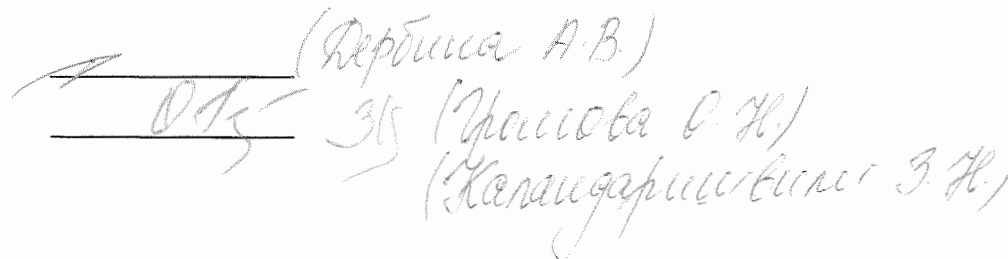 (Дербина А.В.)
(Громова О.Н.)
(Каландаришвили З.Н.)